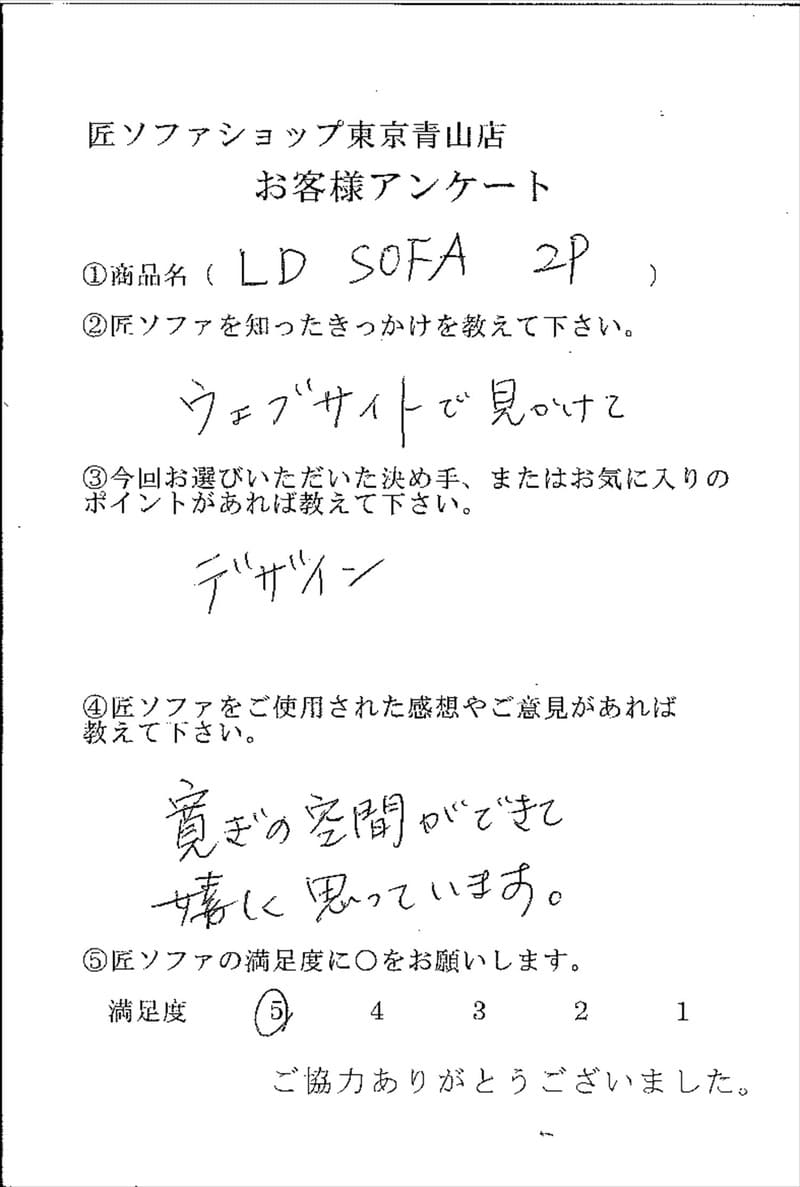 匠ソファショップ東京青山店
お客様アンケート
①商品名（ LD SOFA 2P ）
②匠ソファを知ったきっかけを教えて下さい。
ウェブサイトで見かけて
③今回お選びいただいた決め手、またはお気に入りの
ポイントがあれば教えて下さい。
デザイン
④匠ソファをご使用された感想やご意見があれば
教えて下さい。
寛ぎの空間ができて
嬉しく思っています。
⑤匠ソファの満足度に〇をお願いします。
満足度 5 4 3 2 1
ご協力ありがとうございました。